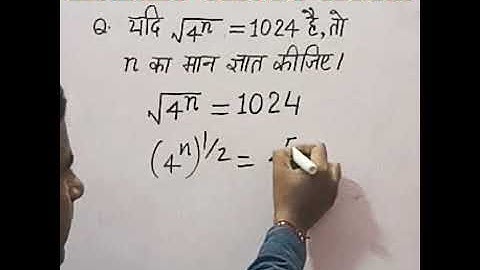 Q. यदि √4ⁿ = 1024 है, तो
n का मान ज्ञात कीजिए।
√4ⁿ = 1024
(4ⁿ)^1/2 =